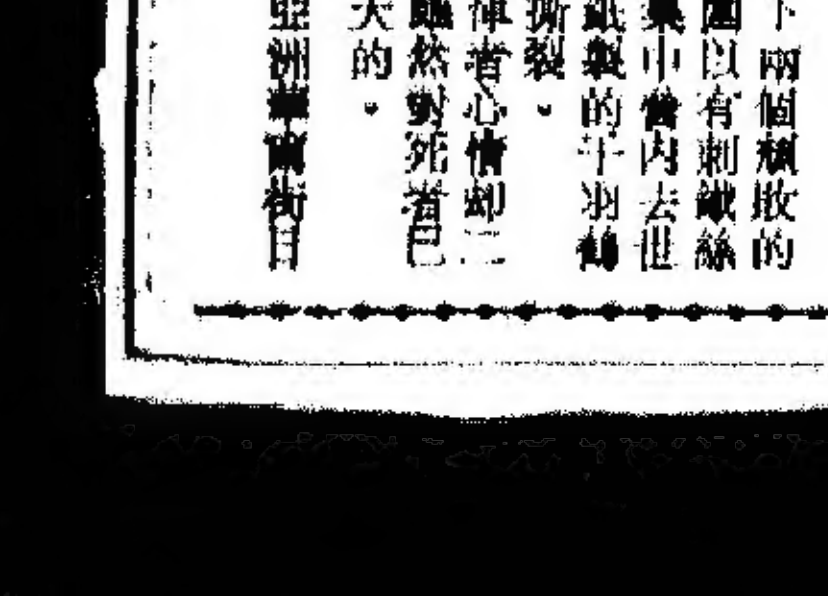 下兩個頹敗的
圍以有刺鐵絲
集中營内去世
紙製的千羽鶴
撕裂。
者心情却
雖然對死者已
大的。
亞洲華爾街日